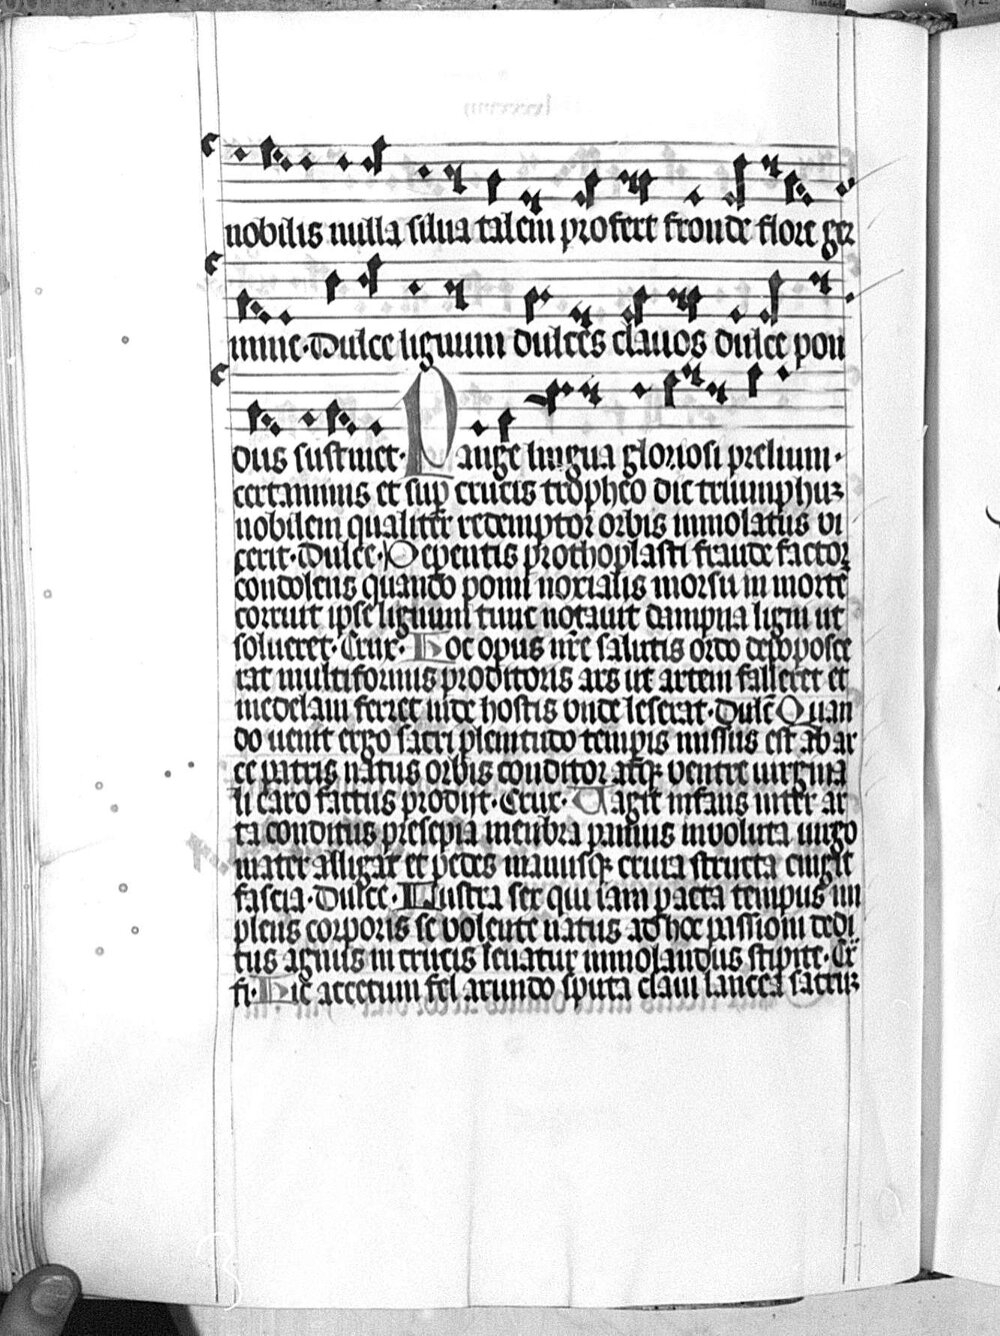 nobilis nulla silua talem profert fronde flore ger
mine. Dulce lignum dulces clauos dulce pon
dus sustinet. Pange lingua gloriosi prelium.
certaminis et sup crucis tropheo dic triumphuz
nobilem qualiter redemptor orbis immolatus vi
cerit. Dulce. De pentis prothoplasti fraude factor
condolens quando pomi noxialis morsu in morte
corruit ipse lignum tunc notauit dampna ligni ut
solueret. Crux. Hoc opus nr̄e salutis ordo depoposce
rat multiformis proditoris ars ut artem falleret et
medelam ferret inde hostis unde leserat. Dulc̄ Quan
do uenit ergo sacri plenitudo tempis missus est ab ar
ce patris natus orbis conditor atq; ventre uirgina
li caro factus prodiit. Crux. Vagit infans inter ar
ta conditus presepia membra pannis inuoluta uirgo
mater alligat et pedes manusq; crura stricta cingit
fascia. Dulce. Lustra sex qui iam pacta tempus im
plens corporis se volente natus ad hoc passioni dedi
tus agnus in crucis leuatur immolandus stipite. Cr̄
fi. Hic acetum fel arundo sputa claui lancea sacruz